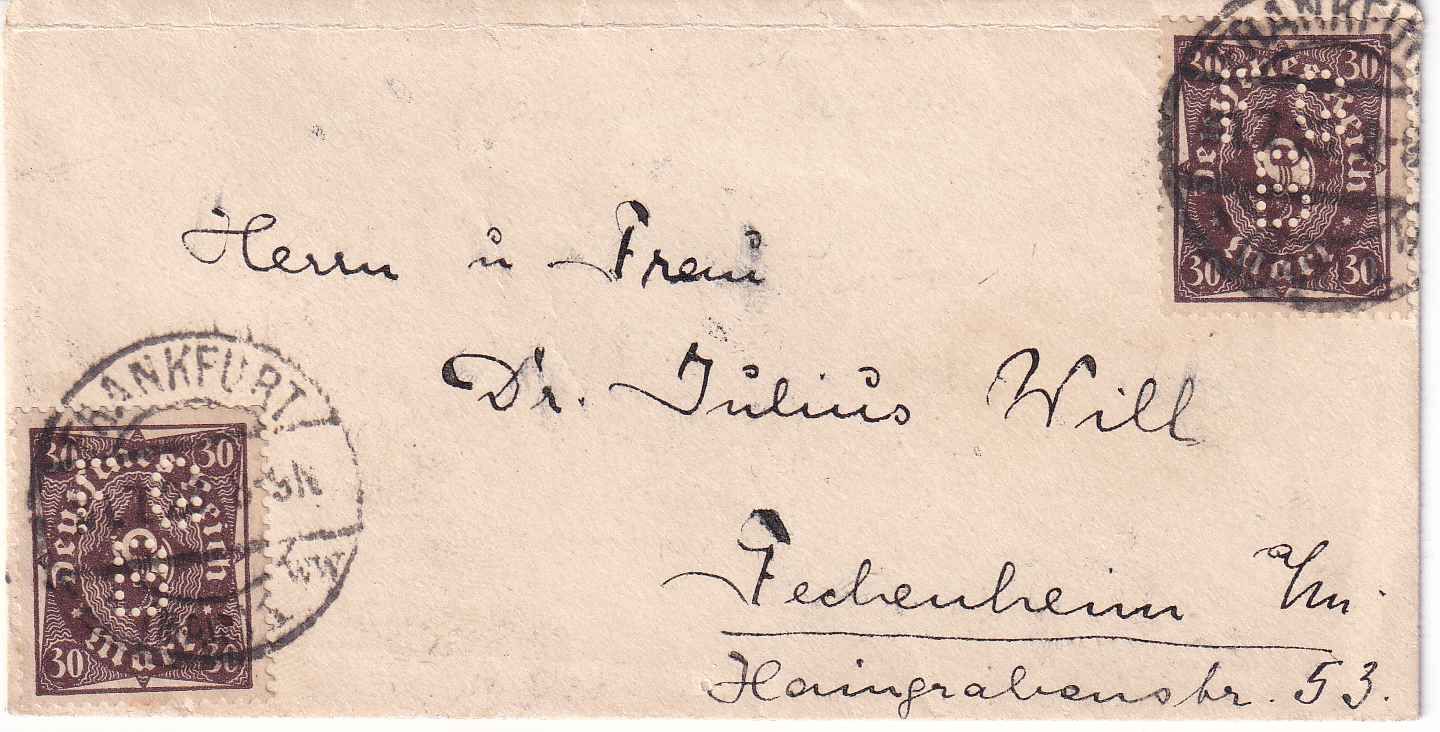 FRANKFURT
30 30
Deutsches Reich
30 Mark 30
Herrn u Frau
Dr. Julius Will
FRANKFURT
30 30
Deutsches Reich
30 Mark 30
Fechenheim a/m.
Haingrabenstr. 53.